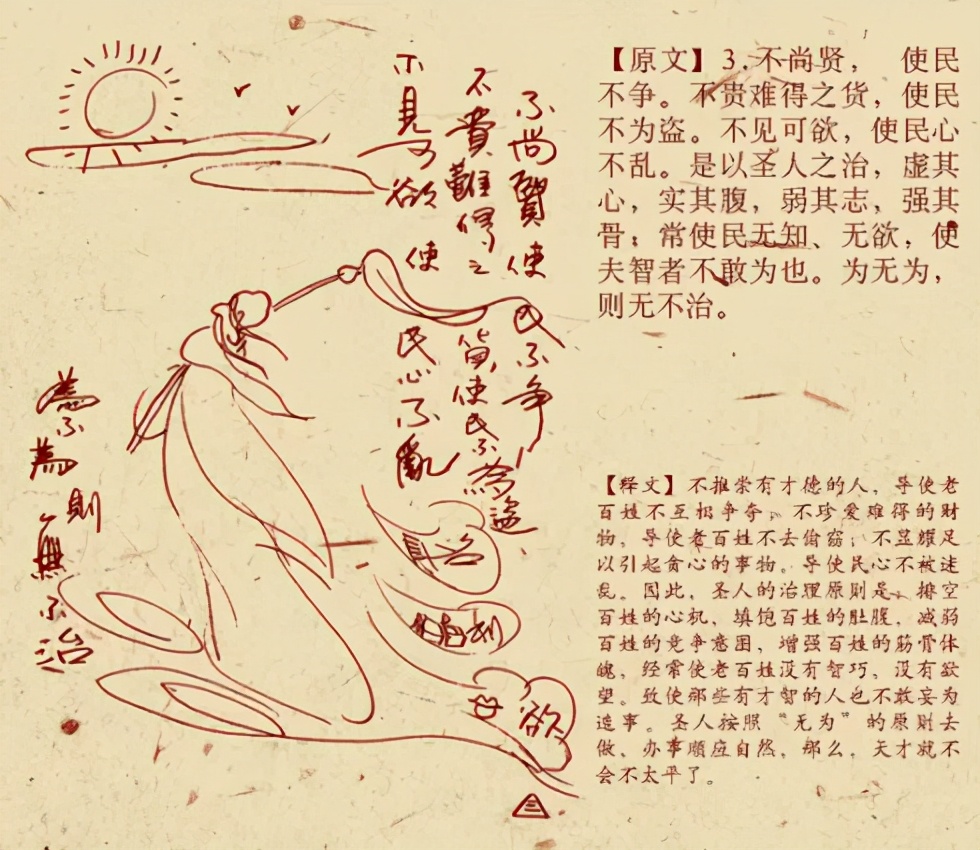 【原文】3.不尚贤， 使民
不争。不贵难得之货，使民
不为盗。不见可欲，使民心
不乱。是以圣人之治，虚其
心，实其腹，弱其志，强其
骨；常使民无知、无欲，使
夫智者不敢为也。为无为，
则无不治。
【释文】不推崇有才德的人，导使老
百姓不互相争夺；不珍爱难得的财
物，导使老百姓不去偷窃；不显耀足
以引起贪心的事物。导使民心不被迷
乱。因此，圣人的治理原则是，排空
百姓的心机，填饱百姓的肚腹，减弱
百姓的竞争意图，增强百姓的筋骨体
魄，经常使老百姓没有智巧，没有欲
望。致使那些有才智的人也不敢妄为
造事。圣人按照“无为”的原则去
做、办事顺应自然，那么，天才就不
会不太平了。
不尚賢使民不争
不貴難得之貨使民不為盗
不見可欲使民心不亂
為不為則無不治
名
利
欲
三